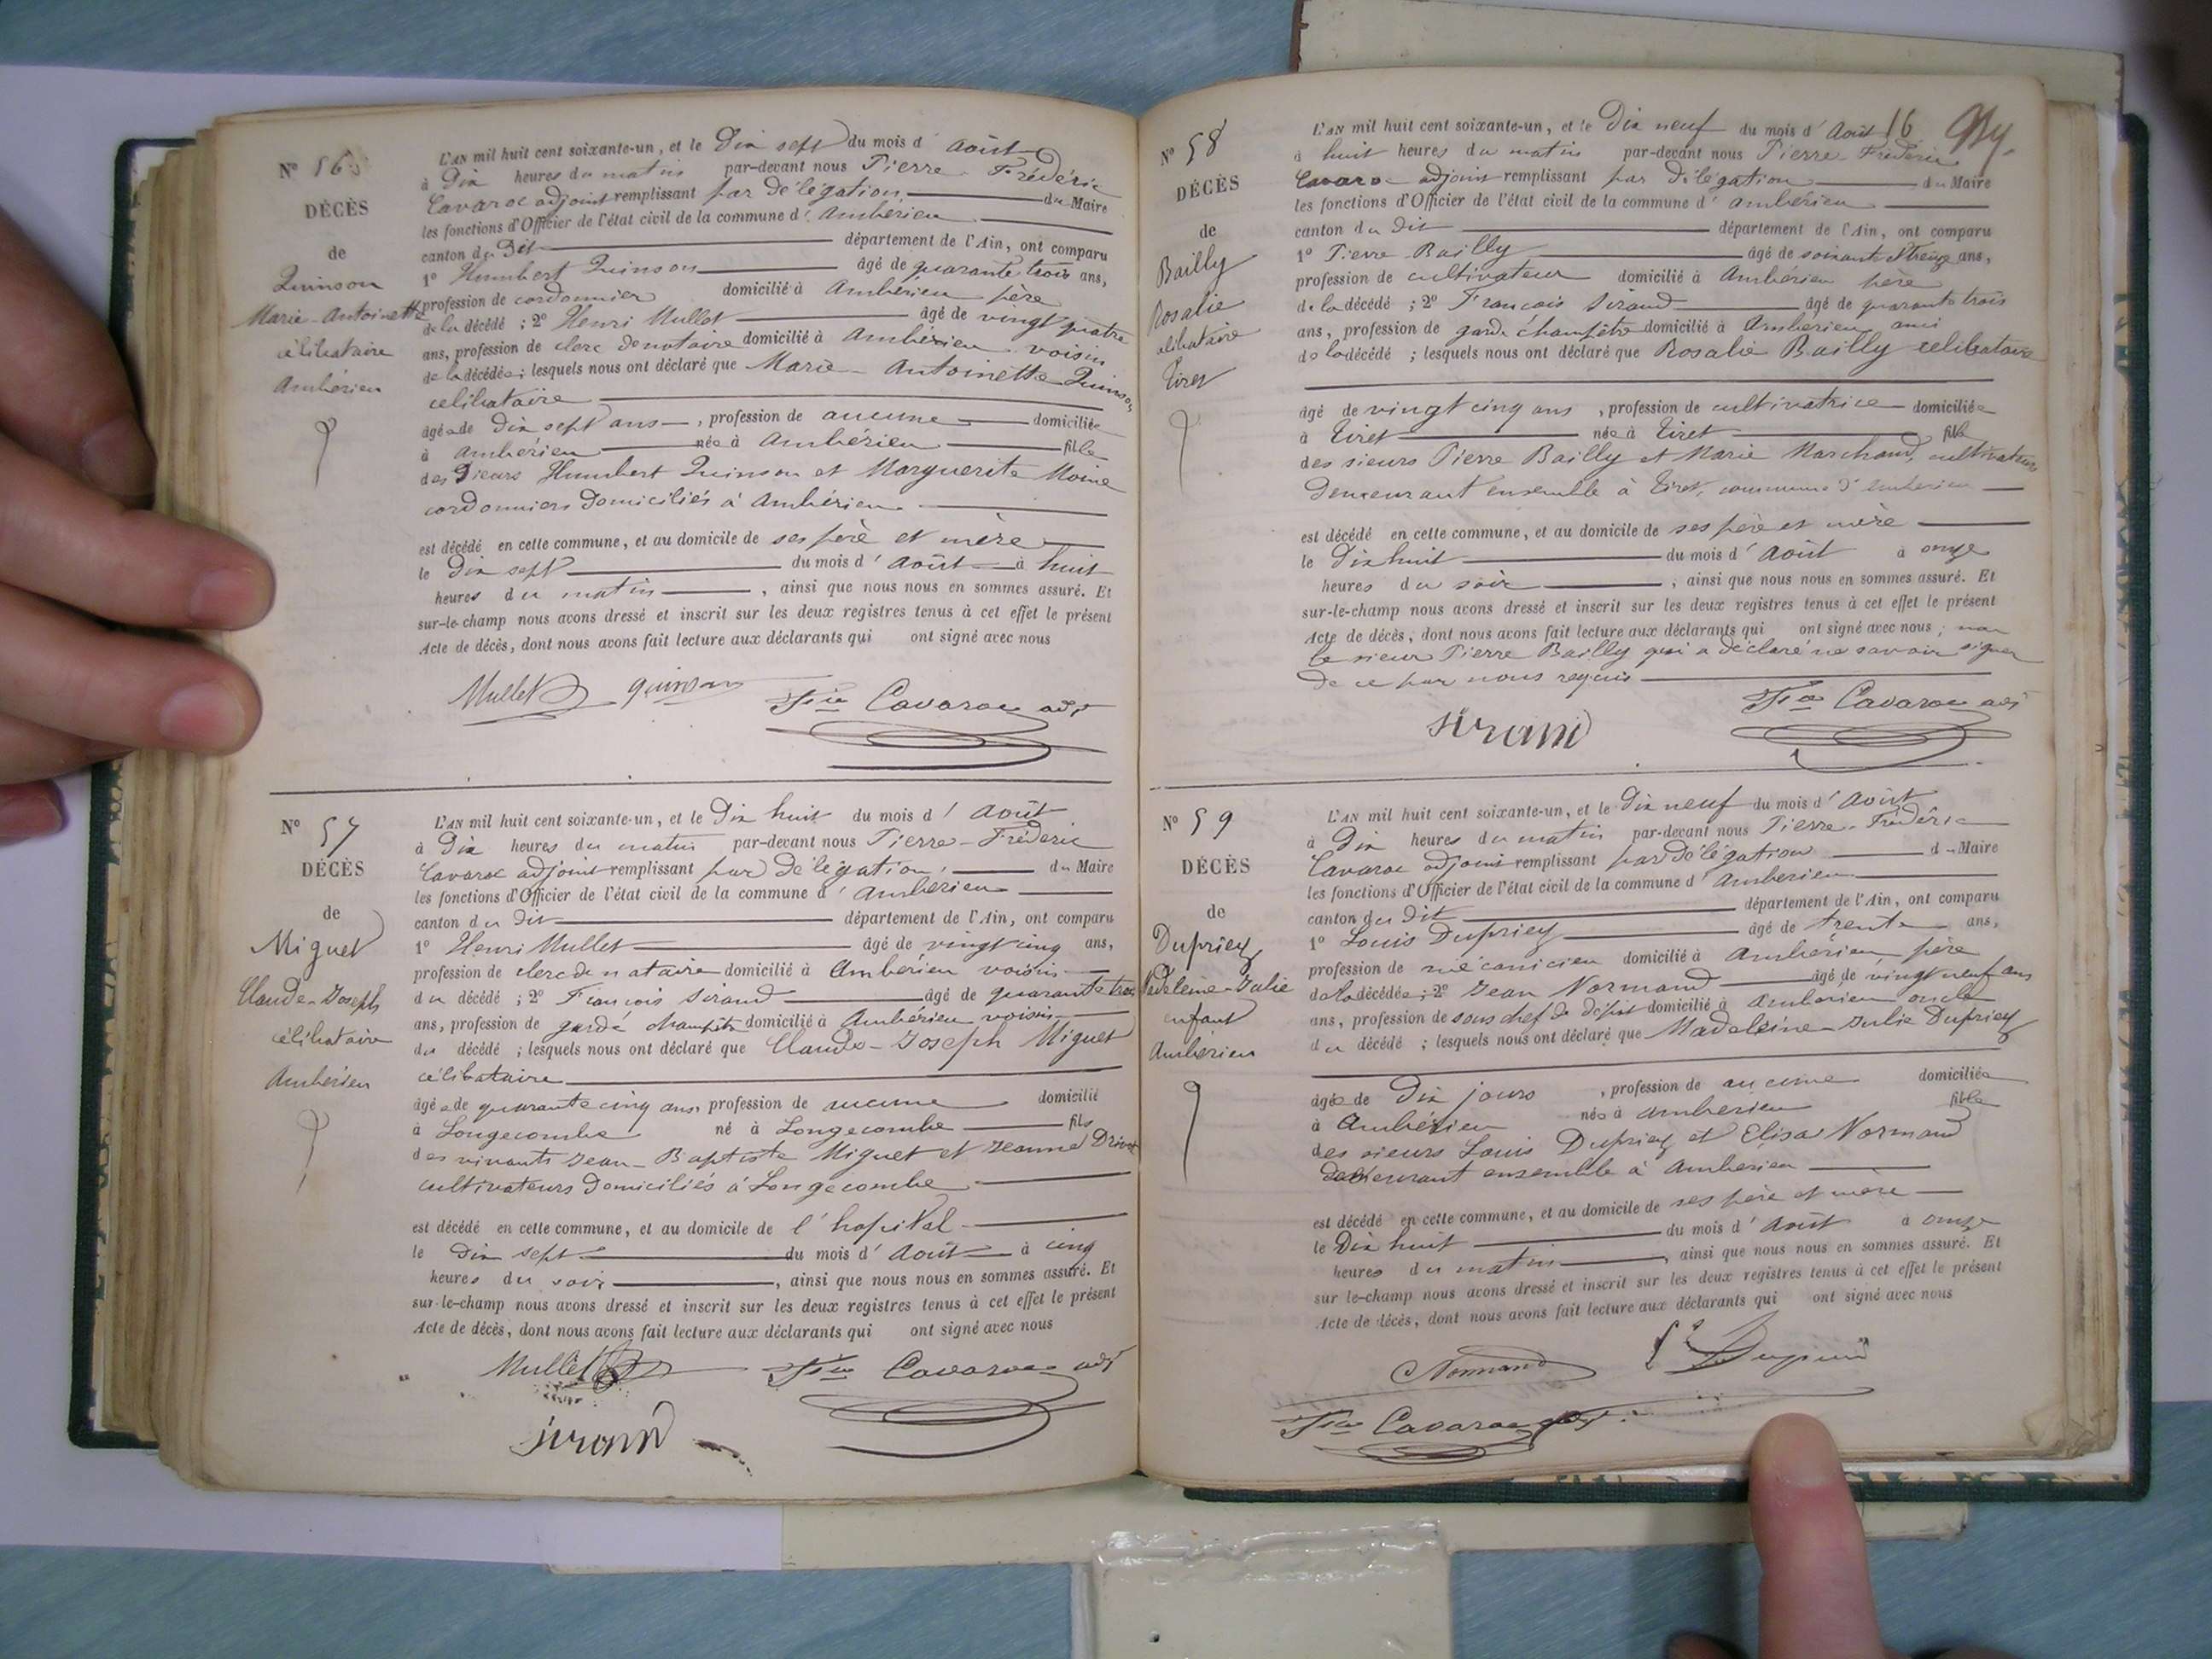 N° 56
DÉCÈS
de
Quinson
Marie-Antoinette
célibataire
Ambérieu
L'AN mil huit cent soixante-un, et le Dix sept du mois d' Août
à Dix heures du matin par-devant nous Pierre-Frédéric
Cavaroc adjoint remplissant par délégation du Maire
les fonctions d'Officier de l'état civil de la commune d' Ambérieu
canton du Dit département de l'Ain, ont comparu
1° Humbert Quinson âgé de quarante trois ans,
profession de cordonnier domicilié à Ambérieu père
de la décédé ; 2° Henri Mullet âgé de vingt quatre
ans, profession de clerc de notaire domicilié à Ambérieu voisin
de la décédée ; lesquels nous ont déclaré que Marie-Antoinette Quinson
célibataire
âgée de dix sept ans, profession de aucune domiciliée
à Ambérieu née à Ambérieu fille
des Sieurs Humbert Quinson et Marguerite Moine
cordonniers domiciliés à Ambérieu
est décédé en cette commune, et au domicile de ses père et mère
le Dix sept du mois d' Août à huit
heures du matin, ainsi que nous nous en sommes assuré. Et
sur-le-champ nous avons dressé et inscrit sur les deux registres tenus à cet effet le présent
Acte de décès, dont nous avons fait lecture aux déclarants qui ont signé avec nous
Mullet quinson Cavaroc adj
N° 57
DÉCÈS
de
Miguet
Claude-Joseph
célibataire
Ambérieu
L'AN mil huit cent soixante-un, et le Dix huit du mois d' Août
à Dix heures du matin par-devant nous Pierre-Frédéric
Cavaroc adjoint remplissant par délégation, du Maire
les fonctions d'Officier de l'état civil de la commune d' Ambérieu
canton du Dit département de l'Ain, ont comparu
1° Henri Mullet âgé de vingt cinq ans,
profession de clerc de notaire domicilié à Ambérieu voisin
du décédé ; 2° François Sirand âgé de quarante trois
ans, profession de garde champêtre domicilié à Ambérieu voisin
du décédé ; lesquels nous ont déclaré que Claude-Joseph Miguet
célibataire
âgé de quarante cinq ans, profession de aucune domicilié
à Longecombe né à Longecombe fils
des vivants Jean-Baptiste Miguet et Jeanne
cultivateurs domiciliés à Longecombe
est décédé en cette commune, et au domicile de l'hopital
le Dix sept du mois d' Août à cinq
heures du soir, ainsi que nous nous en sommes assuré. Et
sur-le-champ nous avons dressé et inscrit sur les deux registres tenus à cet effet le présent
Acte de décès, dont nous avons fait lecture aux déclarants qui ont signé avec nous
Mullet Cavaroc adj
sirand
16
N° 58
DÉCÈS
de
Bailly
Rosalie
célibataire
Tiret
L'AN mil huit cent soixante-un, et le Dix neuf du mois d' Août
à huit heures du matin par-devant nous Pierre-Frédéric
Cavaroc adjoint remplissant par Délégation du Maire
les fonctions d'Officier de l'état civil de la commune d' Ambérieu
canton du dit département de l'Ain, ont comparu
1° Pierre Bailly âgé de soixante et treize ans,
profession de cultivateur domicilié à Ambérieu père
de la décédé ; 2° François Sirand âgé de quarante trois
ans, profession de garde champêtre domicilié à Ambérieu ami
de la décédé ; lesquels nous ont déclaré que Rosalie Bailly célibataire
âgé de vingt cinq ans, profession de cultivatrice domiciliée
à Tiret née à Tiret fille
des sieurs Pierre Bailly et Marie Marchand, cultivateurs
Demeurant ensemble à Tiret, commune d'Ambérieu
est décédé en cette commune, et au domicile de ses père et mère
le Dix huit du mois d' Août à onze
heures du soir, ainsi que nous nous en sommes assuré. Et
sur-le-champ nous avons dressé et inscrit sur les deux registres tenus à cet effet le présent
Acte de décès, dont nous avons fait lecture aux déclarants qui ont signé avec nous ; non
le sieur Pierre Bailly qui a déclaré ne savoir signer
de ce par nous requis
sirand Cavaroc adj
N° 59
DÉCÈS
de
Dupriez
Madeleine-Julie
enfant
Ambérieu
L'AN mil huit cent soixante-un, et le Dix neuf du mois d' Août
à Dix heures du matin par-devant nous Pierre-Frédéric
Cavaroc adjoint remplissant par délégation du Maire
les fonctions d'Officier de l'état civil de la commune d' Ambérieu
canton du Dit département de l'Ain, ont comparu
1° Louis Dupriez âgé de trente ans,
profession de mécanicien domicilié à Ambérieu père
de la décédée ; 2° Jean Normand âgé de vingt neuf ans
ans, profession de sous chef de dépôt domicilié à Ambérieu oncle
du décédé ; lesquels nous ont déclaré que Madeleine-Julie Dupriez
âgée de Dix jours, profession de aucune domiciliée
à Ambérieu née à Ambérieu fille
des sieurs Louis Dupriez et Elisa Normand
demeurant ensemble à Ambérieu
est décédé en cette commune, et au domicile de ses père et mère
le Dix huit du mois d' Août à onze
heures du matin, ainsi que nous nous en sommes assuré. Et
sur le-champ nous avons dressé et inscrit sur les deux registres tenus à cet effet le présent
Acte de décès, dont nous avons fait lecture aux déclarants qui ont signé avec nous
Normand
Cavaroc adj